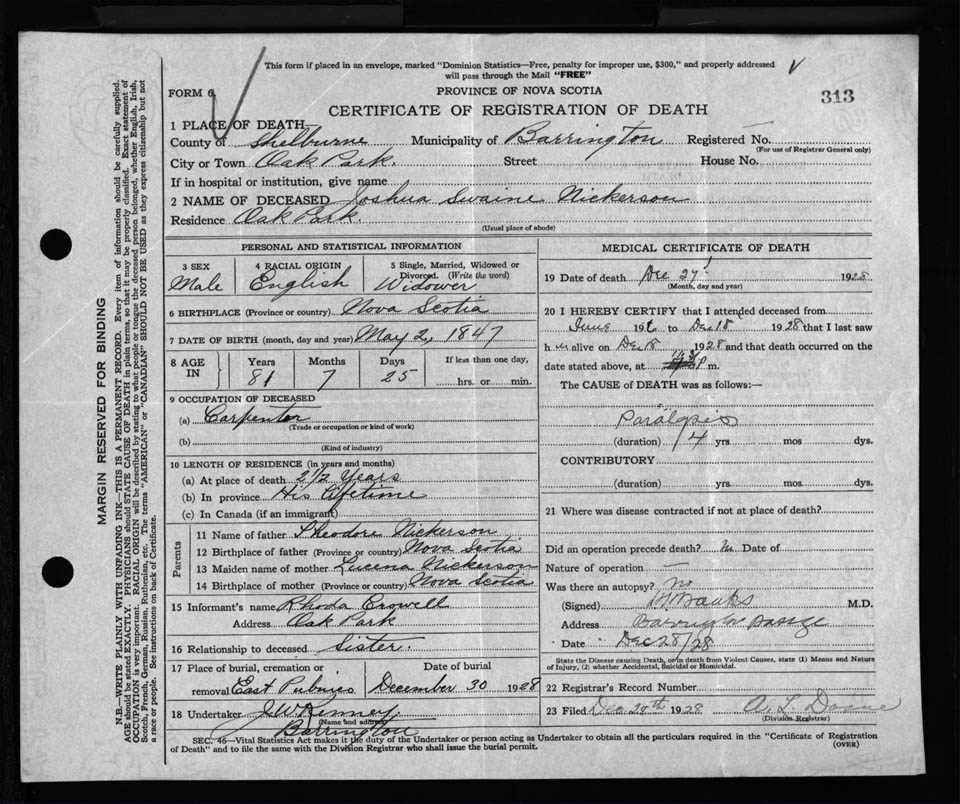 This form if placed in an envelope, marked "Dominion Statistics—Free, penalty for improper use, $300," and properly addressed
will pass through the Mail "FREE"
FORM 6
PROVINCE OF NOVA SCOTIA
313
CERTIFICATE OF REGISTRATION OF DEATH
1 PLACE OF DEATH
County of Shelburne Municipality of Barrington Registered No.
(For use of Registrar General only)
City or Town Oak Park. Street House No.
If in hospital or institution, give name
2 NAME OF DECEASED Joshua Swaine Nickerson
Residence Oak Park.
(Usual place of abode)
PERSONAL AND STATISTICAL INFORMATION
3 SEX 4 RACIAL ORIGIN 5 Single, Married, Widowed or
Divorced. (Write the word)
Male English Widower
6 BIRTHPLACE (Province or country) Nova Scotia
7 DATE OF BIRTH (month, day and year) May 2, 1847
8 AGE IN Years Months Days If less than one day,
81 7 25 hrs. or min.
9 OCCUPATION OF DECEASED
(a) Carpenter
(Trade or occupation or kind of work)
(b)
(Kind of industry)
10 LENGTH OF RESIDENCE (in years and months)
(a) At place of death 2 1/2 Years
(b) In province His Lifetime
(c) In Canada (if an immigrant)
Parents
11 Name of father Theodore Nickerson
12 Birthplace of father (Province or country) Nova Scotia
13 Maiden name of mother Lucena Nickerson
14 Birthplace of mother (Province or country) Nova Scotia
15 Informant's name Rhoda Crowell
Address Oak Park
16 Relationship to deceased Sister.
17 Place of burial, cremation or Date of burial
removal East Pubnico December 30 1928
18 Undertaker J W Kenney
(Name and address)
Barrington
MEDICAL CERTIFICATE OF DEATH
19 Date of death Dec 27 1928
(Month, day and year)
20 I HEREBY CERTIFY that I attended deceased from
June 192 to Dec 18 1928 that I last saw
h alive on Dec 18 1928 and that death occurred on the
date stated above, at P m.
The CAUSE of DEATH was as follows:—
Paralysis
(duration) 14 yrs mos dys.
CONTRIBUTORY
(duration) yrs. mos. dys.
21 Where was disease contracted if not at place of death?
Did an operation precede death? no Date of
Nature of operation —
Was there an autopsy? no
(Signed) Banks M.D.
Address Barrington Passage
Date Dec 28/28
State the Disease causing Death, or in death from Violent Causes, state (1) Means and Nature
of Injury, (2) whether Accidental, Suicidal or Homicidal.
22 Registrar's Record Number
23 Filed Dec 28th 1928 A. L. Doane
(Division Registrar)
SEC. 46—Vital Statistics Act makes it the duty of the Undertaker or person acting as Undertaker to obtain all the particulars required in the "Certificate of Registration
of Death" and to file the same with the Division Registrar who shall issue the burial permit.
(OVER)
MARGIN RESERVED FOR BINDING
N.B.—WRITE PLAINLY WITH UNFADING INK—THIS IS A PERMANENT RECORD. Every item of information should be carefully supplied.
AGE should be stated EXACTLY. PHYSICIANS should STATE CAUSE OF DEATH in plain terms, so that it may be properly classified. Exact statement of
OCCUPATION is very important. RACIAL ORIGIN will be described by stating to what people or tongue the deceased person belonged, whether English, Irish,
Scotch, French, German, Russian, Ruthenian, etc. The terms "AMERICAN" or "CANADIAN" SHOULD NOT BE USED as they express citizenship but not
a race or people. See instructions on back of Certificate.